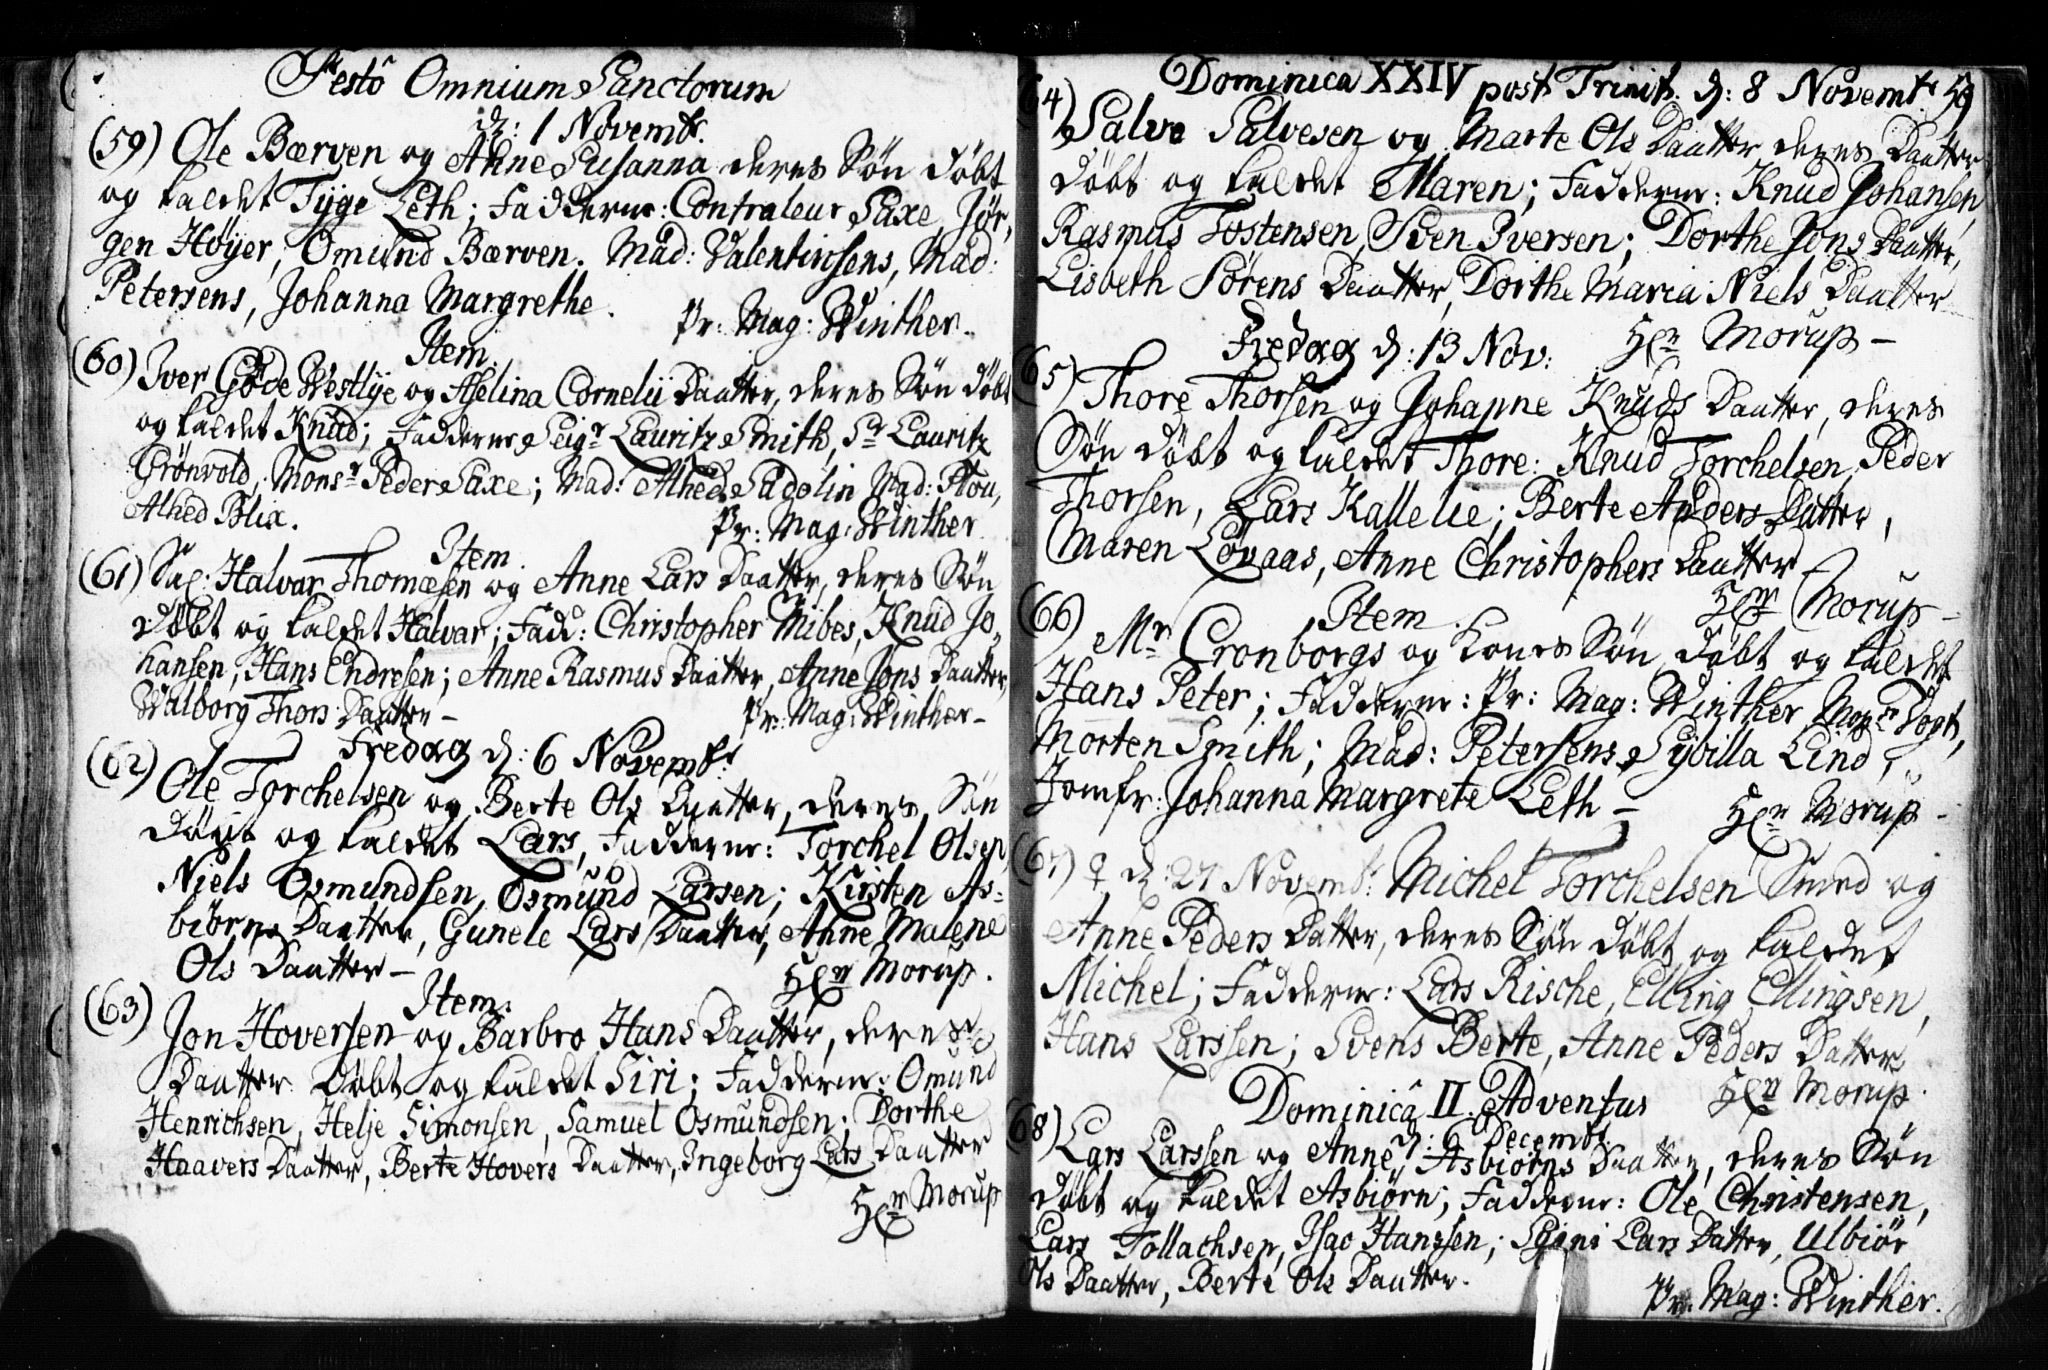 Festô Omnium Sanctorum
d: 1 Novembr.
(59) Ole Bærven og Anne Susanna deres Søn døbt
og kaldet Tÿge Leth; Fadderne: Contraleur Saxe, Jør,
gen Høÿer, Omund Bærven. Mad: Valentinsens, Mad:
Petersens, Johanna Margrethe.
Pr: Mag: Winther.
Item.
(60) Iver Gøde Westlÿe og Aselina Cornelii Daatter, deres Søn døbt
og kaldet Knud; Fadderne Seigr Lauritz Smith, Sr Lauritz
Grönvold, Monsr Peder Saxe; Mad: Alhed Sadolin Mad: Plou,
Alhed Blix.
Pr: Mag: Winther
Item.
(61) Sal: Halvar Thomæsen og Anne Lars Daatter, deres Søn
døbt og kaldet Halvar; Fadd: Christopher Mibes, Knud Jo,
hansen, Hans Endresen; Anne Rasmus Daatter, Anne Jons Daatter,
Walborg Thors Daatter –
Pr: Mag: Winther –
Fredag d: 6 Novembr:
(62) Ole Torchelsen og Berte Ols Daatter, deres Søn
døbt og kaldet Lars, Fadderne: Torchel Olsen,
Niels Osmundsen, Osmund Larsen; Kirsten As-
biörns Daatter, Gunele Lars Daatter, Anne Malene
Ols Daatter –
Hr Morup.
Item.
(63) Jon Hoversen og Barbro Hans Daatter, deres
Daatter døbt og kaldet Siri; Fadderne: Omund
Henrichsen, Helje Simonsen, Samuel Osmundsen; Dorthe
Haavers Daatter, Berte Hovers Daatter, Ingeborg Lars Daatter
Hr Morup
Dominica XXIV post Trinit. d: 8 Novembr 59
64) Salve Salvesen og Marte Ols Daatter deres Daatter
døbt og kaldet Maren; Fadderne: Knud Johansen,
Rasmus Tostensen, Sven Iversen; Dorthe Jons Daatter,
Lisbeth Sørens Daatter, Dorthe Maria Niels Daatter
Hr Morup –
Fredag d: 13 Nov:
65) Thore Thorsen og Johanne Knuds Daatter, deres
Søn døbt og kaldet Thore: Knud Torchelsen, Peder
Thorsen, Lars Kallelie; Berte Anders Datter,
Maren Løvaas, Anne Christophers Daatter
Hr Morup –
Item.
(66) Mr Cronborgs og Kones Søn døbt og kaldet
Hans Peter; Fadderne: Pr: Mag: Winther, Monsr Vogt,
Morten Smith; Mad: Petersens, Sÿbilla Lind,
Jomfr: Johanna Margrete Leth –
Hr Morup –
(67) ♀ d: 27 Novembr: Michel Torchelsen Smed og
Anne Peders Datter, deres Søn døbt og kaldet
Michel; Fadderne: Lars Rische, Elling Ellingsen,
Hans Larssen; Svens Berte, Anne Peders Datter
Hr Morup.
Dominicâ II. Adventus
d: 6 Decembr.
68) Lars Larssen og Anne Asbiörns Daatter, deres Søn
døbt og kaldet Asbiörn; Fadderne: Ole Christensen,
Lars Tollachsen, Isac Hanssen; Lars Datter, Ulbiör
Ols Daatter, Berte Ols Daatter.
Pr. Mag: Winther.